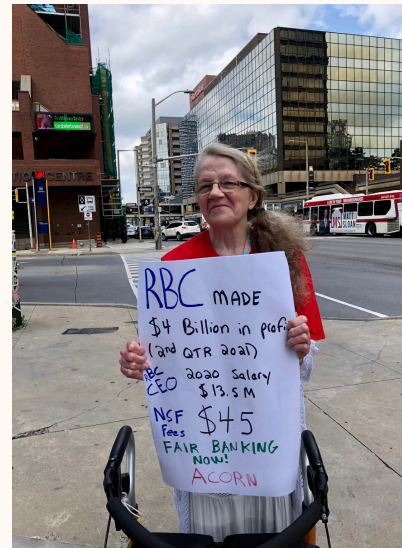 TION CENTRE
MATT
SLOAN
RBC MADE
$4 Billion in profi
(2nd QTR 2021)
RBC
CEO
2020 Salary
$13.5M
NSF
Fees
$45
FAIR BANKING
NOW!
ACORN